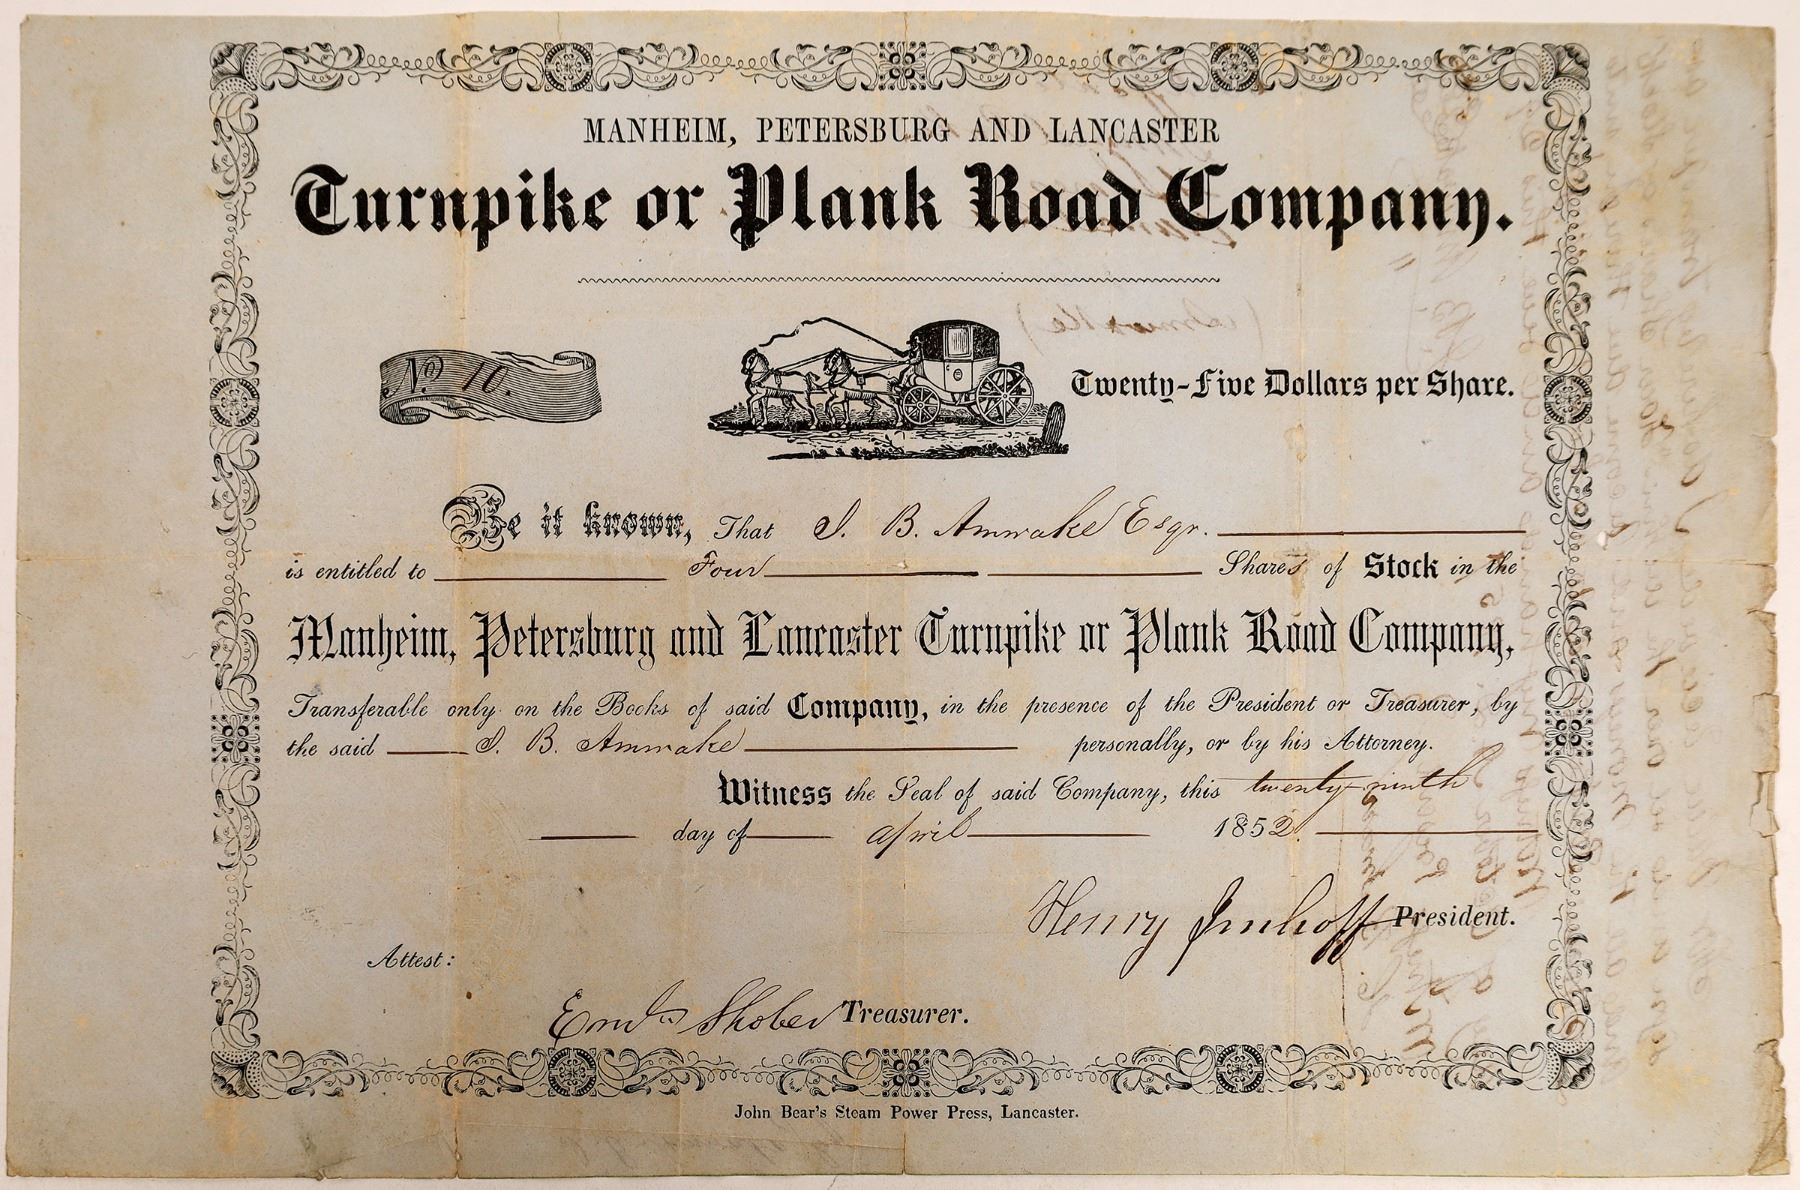 MANHEIM, PETERSBURG AND LANCASTER
Turnpike or Plank Road Company.
No. 10.
Twenty-Five Dollars per Share.
Be it known, That I. B. Amwake Esqr.
is entitled to Four Shares of Stock in the
Manheim, Petersburg and Lancaster Turnpike or Plank Road Company,
Transferable only on the Books of said Company, in the presence of the President or Treasurer, by
the said I. B. Amwake personally, or by his Attorney.
Witness the Seal of said Company, this twenty-ninth
day of April 1852.
Henry Imhoff President.
Attest:
Shober Treasurer.
John Bear's Steam Power Press, Lancaster.